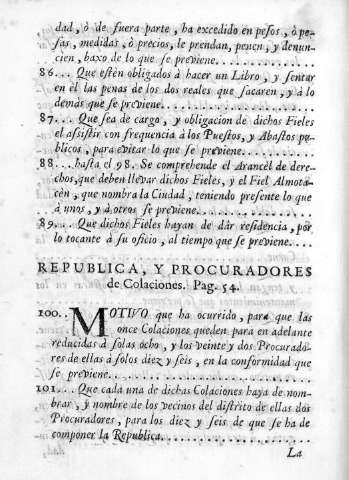 dad, ò de fuera parte, ha excedido en pesos, ò pe-
sas, medidas, ò precios, le prendan, penen, y denun-
cien, baxo de lo que se previene.
86... Que estèn obligados à hacer un Libro, y sentar
en èl las penas de los dos reales que sacaren, y à lo
demàs que se previene.
87... Que sea de cargo, y obligacion de dichos Fieles
el assistir con frequencia à los Puestos, y Abastos pu-
blicos, para evitar lo que se previene.
88... hasta el 98. Se comprehende el Arancèl de dere-
chos, que deben llevar dichos Fieles, y el Fiel Almota-
cèn, que nombra la Ciudad, teniendo presente lo que
à unos, y à otros se previene.
89... Que dichos Fieles hayan de dàr residencia, por
lo tocante à su oficio, al tiempo que se previene....
REPUBLICA, Y PROCURADORES
de Colaciones. Pag. 54.
100.. MOTIVO que ha ocurrido, para que las
once Colaciones queden para en adelante
reducidas à solas ocho, y los veinte y dos Procurado-
res de ellas à solos diez y seis, en la conformidad que
se previene.
101... Que cada una de dichas Colaciones haya de nom-
brar, y nombre de los vecinos del distrito de ellas dos
Procuradores, para los diez y seis de que se ha de
componer la Republica.
La